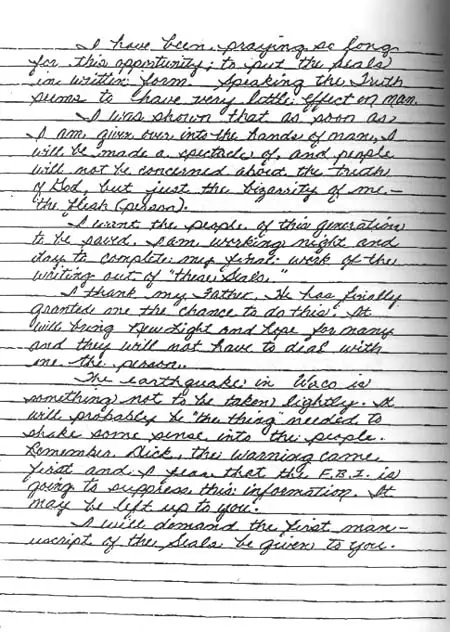 I have been praying so long
for this opportunity; to put the Seals
in written form. Speaking the Truth
seems to have very little effect on man.
I was shown that as soon as
I am given over into the hands of man, I
will be made a spectacle of, and people
will not be concerned about the truth
of God, but just the bizarrity of me -
the flesh (person).
I want the people of this generation
to be saved. I am working night and
day to complete my final work of the
writing out of "these Seals."
I thank my Father. He has finally
granted me the chance to do this. It
will bring New Light and hope for many
and they will not have to deal with
me the person.
The earthquake in Waco is
something not to be taken lightly. It
will probably be "the thing" needed to
shake some sense into the people.
Remember, Dick, the warning came
first and I fear that the F.B.I. is
going to suppress this information. It
may be left up to you.
I will demand the first man-
uscript of the Seals be given to you.